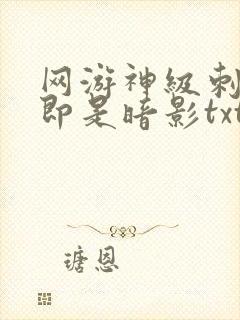 网游神级刺
即是暗影txt
瑭恩